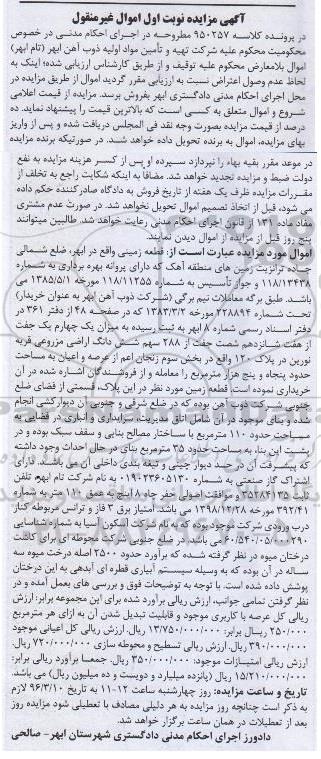 آگهی مزایده نوبت اول اموال غیرمنقول
در پرونده کلاسه ۹۵۰۲۵۷ مطروحه در اجرای احکام مدنی در خصوص
محکومیت محکوم علیه شرکت تهیه و تأمین مواد اولیه ذوب آهن ابهر (تام ابهر)
اموال بلامعارض محکوم علیه توقیف و از طریق کارشناس ارزیابی شده؛ اینک به
لحاظ عدم وصول اعتراض نسبت به ارزیابی مقرر گردید اموال از طریق مزایده در
محل اجرای احکام مدنی دادگستری ابهر بفروش برسد. مزایده از قیمت اعلامی
شروع و اموال متعلق به کسی است که بالاترین قیمت را پیشنهاد نماید. ده
درصد از قیمت مزایده بصورت وجه نقد فی المجلس دریافت شده و پس از واریز
بهای مزایده، اموال به برنده تحویل داده خواهد شد. در صورتیکه برنده مزایده
در موعد مقرر بقیه بهاء را نپردازد سپرده او پس از کسر هزینه مزایده به نفع
دولت ضبط و مزایده تجدید خواهد شد. مضافاً به اینکه شکایت راجع به تخلف از
مقررات مزایده ظرف یک هفته از تاریخ فروش به دادگاه صادرکننده حکم داده
می شود، قبل از اتخاذ تصمیم اموال تحویل نخواهد شد. در صورت عدم مشتری
مفاد ماده ۱۳۱ از قانون اجرای احکام مدنی رعایت خواهد شد. طالبین میتوانند
پنج روز قبل از مزایده از اموال دیدن نمایند.
اموال مورد مزایده عبارت است از: قطعه زمینی واقع در ابهر، ضلع شمالی
جاده ترانزیت زمین های منطقه آهک که دارای پروانه بهره برداری به شماره
۱۱۸/۱۳۴۳۸ و جواز تأسیس به شماره ۱۱۸/۱۱۲۵۵ مورخه ۱۳۸۵/۵/۱ می
باشد. طبق برگه معاملات نیم برگی (شرکت ذوب آهن ابهر به عنوان خریدار)
تحت شماره ۲۲۸۸۹۴ مورخه ۱۳۸۳/۳/۲ که در صفحه ۴۸ از دفتر ۳۶۱ در
دفتر اسناد رسمی شماره ۸ ابهر به ثبت رسیده به میزان یک چهارم یک جفت
از هفت شانزدهم شصت جفت از ۲۸۸ سهم شش دانگ اراضی مزروعی قریه
نورین در پلاک ۱۲۰ واقع در بخش سوم زنجان اعم از عرصه و اعیان به مساحت
حدود پنجاه و پنج هزار مترمربع را معامله و از فروشندگان اشاره شده در آن
خریداری نموده است. قطعه زمین مورد نظر در این پلاک، قسمتی از فضای ضلع
جنوبی شرکت ذوب آهن بوده که در ضلع شرقی و جنوبی آن دیوار کشی انجام
شده و بنای موجود در آن شامل اتاق مدیریت، سرایداری و انباری در فضایی به
مساحت حدود ۱۱۰ مترمربع با ساختار مصالح بنایی و سقف سبک بوده و در
پشت این بناء، به مساحت حدود ۳۵ مترمربع بنای در حال احداث وجود داشته
که پیشرفت آن در حد دیوار چینی و تیغه بندی داخلی آن می باشد. دارای
اشتراک گاز صنعتی به شماره ۰۱۹۰۲۳۶۰۵۱۳۰ به نام شرکت تام ابهر، تلفن
ثابت ۳۵۲۸۴۱۳۵ و موافقت اصولی حفر چاه ۸ اینچ به عمق ۱۲۰ متر به شماره
۳۹۲/۴۱ مورخه ۱۳۹۸/۱۲/۲۸ می باشد. امتیاز برق ۳ فاز و ترانس مربوطه کنار
درب ورودی شرکت موجود بوده که به نام شرکت آسکون آسیا به شماره شناسایی
۶۰/۵۴۰/۰۵/۰۰۲۹۰ می باشد. در ضلع جنوبی ملک محوطه ای برای کاشت
درختان میوه در نظر گرفته شده که برآورد حدود ۲۵۰۰ اصله درخت میوه سه
ساله در آن بوده که به وسیله سیستم آبیاری قطره ای آبدهی به این درختان
پوشش داده شده است. با توجه به توضیحات فوق و بررسی های بعمل آمده و در
نظر گرفتن تمامی جوانب، ارزش ریالی برآورد شده برای این مجموعه برابر: ارزش
ریالی کل عرصه با کاربری موجود و قابلیت تبدیل شدن آن به ازای هر مترمربع
۲۵۰/۰۰۰ ریال برابر: ۱۳/۷۵۰/۰۰۰/۰۰۰ ریال. ارزش ریالی کل اعیانی موجود
۳۹۰/۰۰۰/۰۰۰ ریال. ارزش ریالی تسطیح و محوطه سازی ۷۲۰/۰۰۰/۰۰۰ ریال.
ارزش ریالی امتیازات موجود: ۳۵۰/۰۰۰/۰۰۰ ریال. جمعاً برآورد ریالی برابر:
۱۵/۲۱۰/۰۰۰/۰۰۰ ریال (پانزده میلیارد و دویست و ده میلیون ریال) می باشد.
تاریخ و ساعت مزایده: روز چهارشنبه ساعت ۱۲-۱۱ به تاریخ ۹۶/۳/۱۰ لازم
به ذکر است چنانچه روز مزایده به هر دلیلی مصادف با تعطیلی شود مزایده روز
بعد از تعطیلات در همان ساعت برگزار خواهد شد.
دادورز اجرای احکام مدنی دادگستری شهرستان ابهر- صالحی